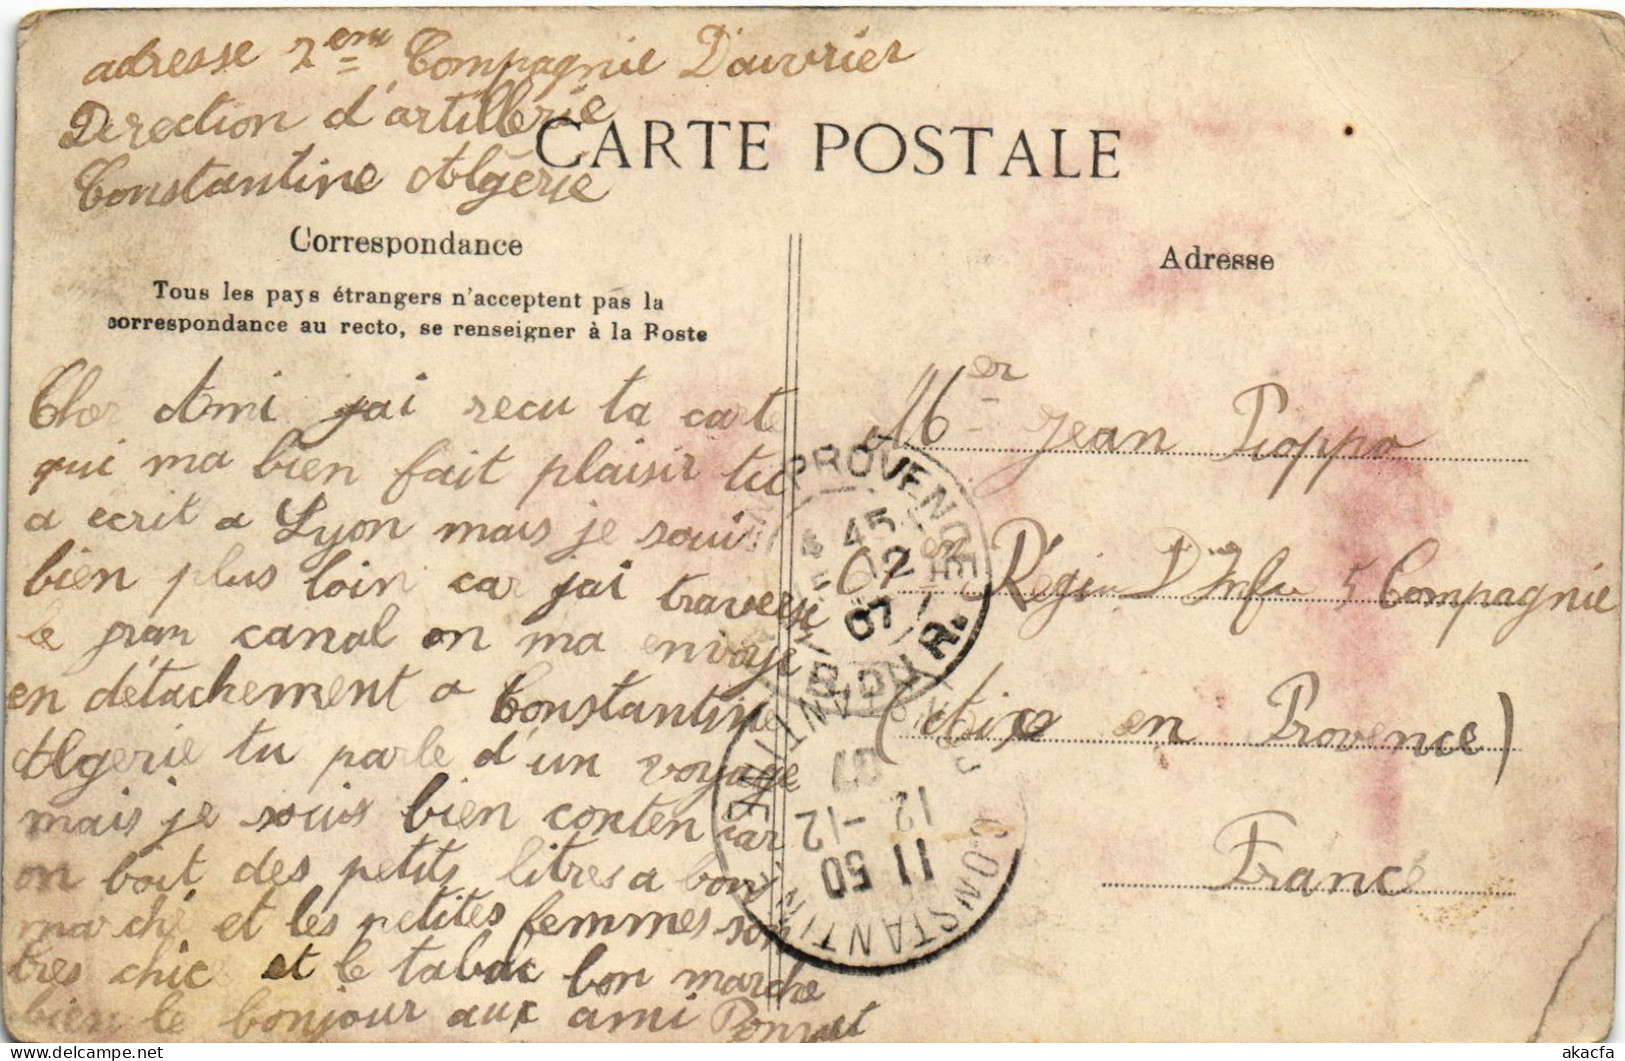 adresse 2eme Compagnie D'ouvrier
Direction d'artillerie
Constantine Algérie
CARTE POSTALE
Correspondance
Tous les pays étrangers n'acceptent pas la
correspondance au recto, se renseigner à la Poste
Cher Ami jai recu ta carte
qui ma bien fait plaisir tu
a ecrit a Lyon mais je souis
bien plus loin car jai traverse
le gran canal on ma envoye
en détachement a Constantine
Algerie tu parle d'un voyage
mais je souis bien conten car
on boit des petits litres a bon
marché et les petites femmes son
tres chic et le tabac bon marche
bien le bonjour aux ami
Adresse
Mer Jean
Régim D'Infie 5 Compagnie
(Aix en Provence)
France
PROVENCE
4 45
12
07
B. DU R.
CONSTANTINE
CONSTANTINE
11 50
12 -12
07
akacfa